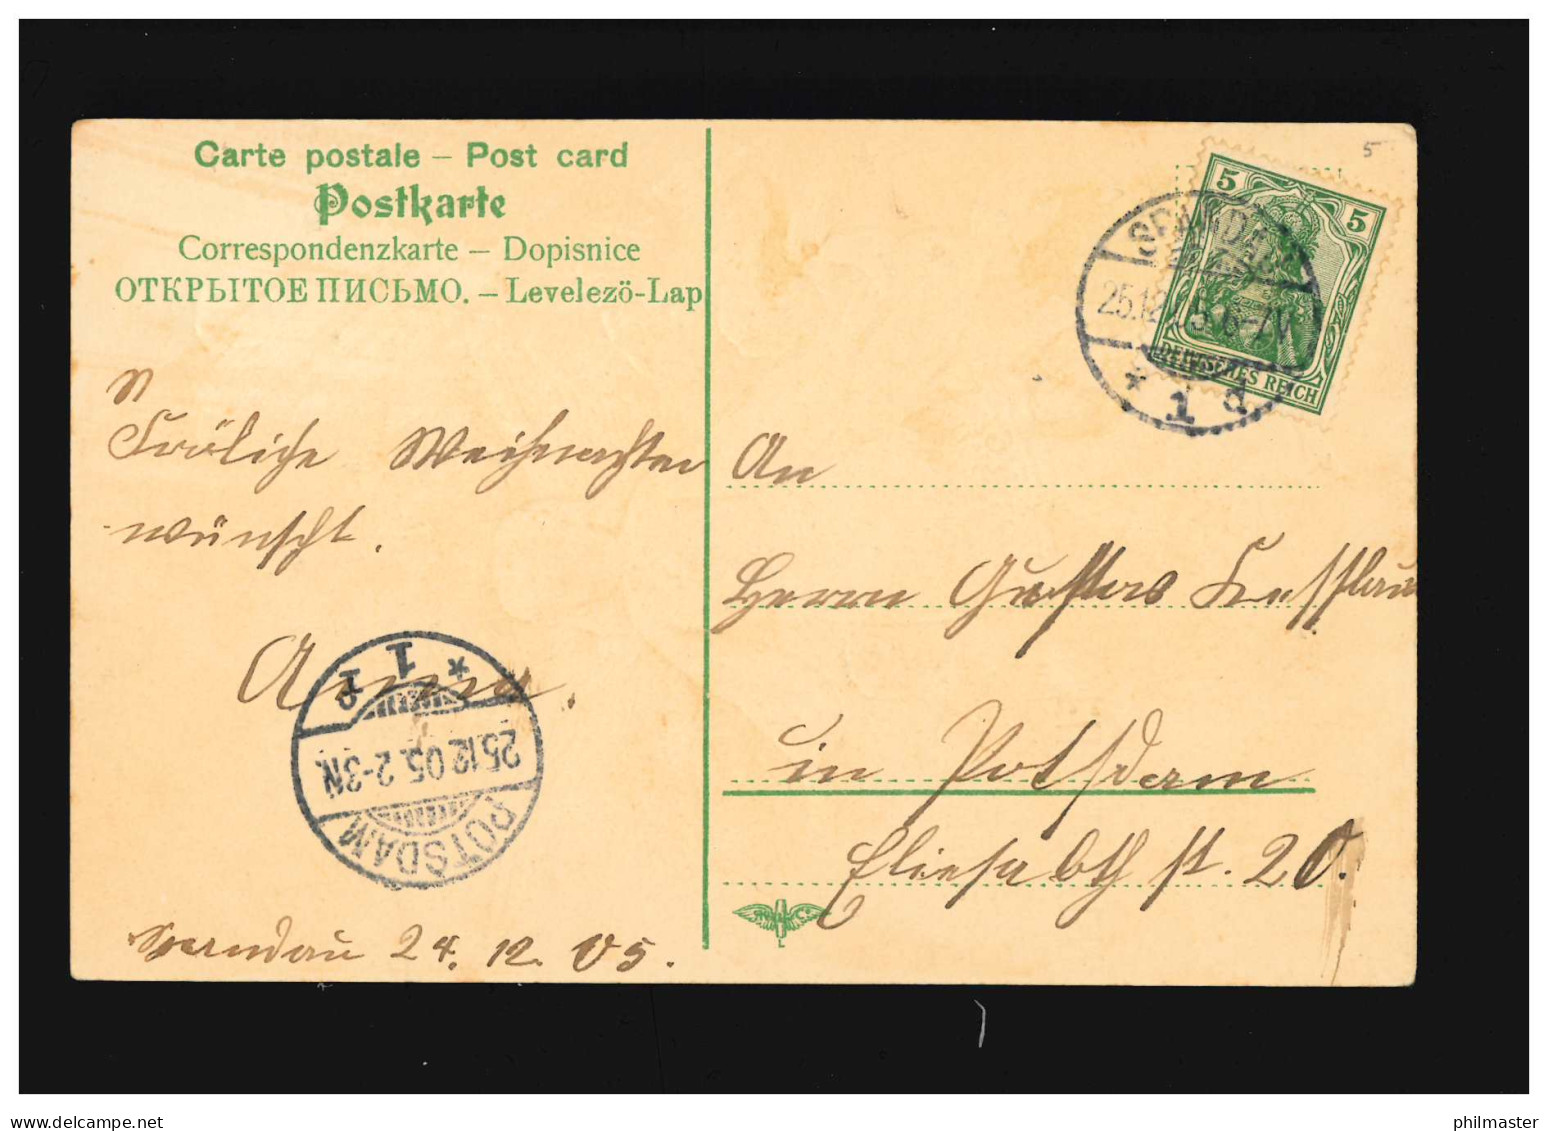 Carte postale – Post card
Postkarte
Correspondenzkarte – Dopisnice
ОТКРЫТОЕ ПИСЬМО. – Levelezö-Lap
5
5 5
DEUTSCHES REICH
SPANDAU
25.12.05. 6-7V.
* 1 d
Fröliche Weihnachten
wünscht.
Anna.
POTSDAM
25.12.05. 2-3N.
* 1 I
Spandau 24. 12. 05.
An
Herrn Gustav
in Potsdam
Eliesabethst. 20.
L
philmaster